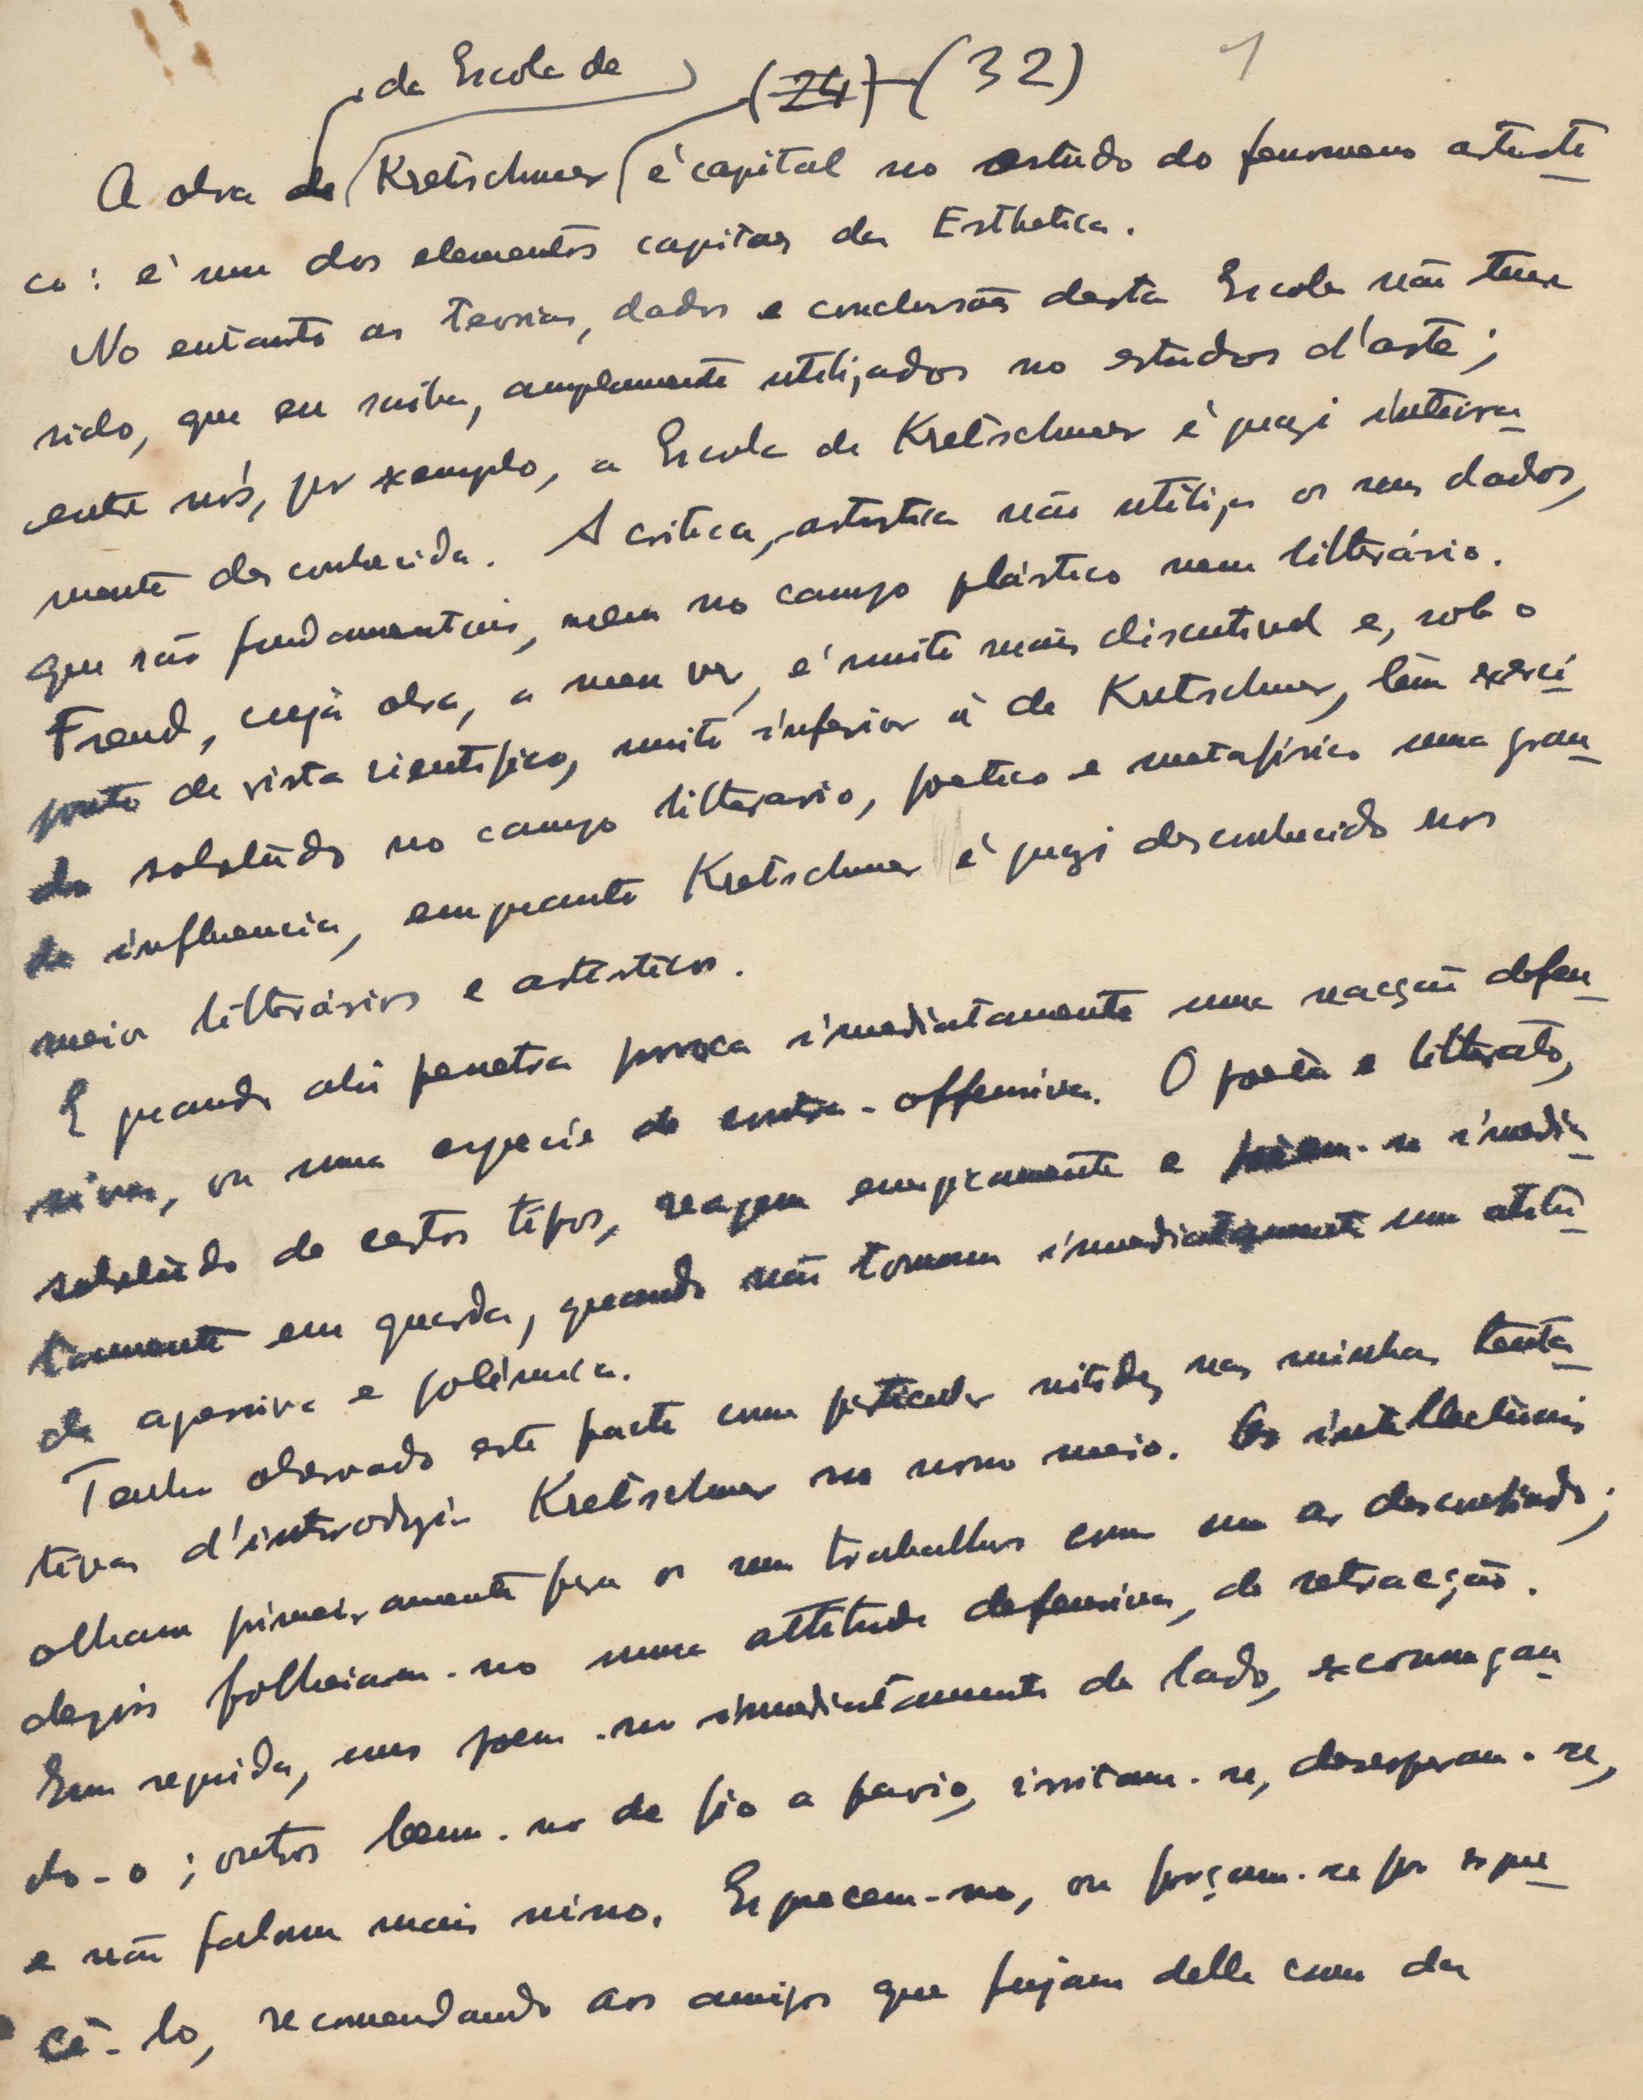 , da Escola de
(24) (32) 1
A obra de Kretschmer é capital no estudo do fenomeno artisti
co: é um dos elementos capitaes da Esthetica.
No entanto as teorias, dados e conclusões desta Escola não teem
sido, que eu saiba, amplamente utilizados no estudos d'arte;
entre nós, por exemplo, a Escola de Kretschmer é quazi inteira
mente desconhecida. A critica, artistica não utiliza os seus dados,
que são fundamentais, nem no campo plástico nem litterário.
Freud, cuja obra, a meu ver, é muito mais discutivel e, sob o
ponto de vista scientifico, muito inferior á de Kretschmer, têm exerci
do sobretudo no campo litterario, poetico e metafísico uma gran
de influencia, emquanto Kretschmer é quazi desconhecido nos
meios litterários e artisticos.
E quando ahi penetra provoca imediatamente uma reacção defen
siva, ou uma especie de contra-offensiva. O poeta e litterato,
sobretudo de certos tipos, reagem energicamente e põem-se imedia
tamente em guarda, quando não tomam immediatamente um atitu
de agressiva e polémica.
Tenho observado este facto com particular nitidez nas minhas tenta
tivas d'introduzir Kretschmer no nosso meio. Os intellectuais
olham primeiramente para os seus trabalhos com um ar desconfiado;
depois folheiam-no numa attitude defensiva, de retracção.
Em seguida, uns poem-no immediatamente de lado, excomungan
do-o; outros leem-no de fio a pavio, irritam-se, desesperam-se,
e não falam mais nisso. Esquecem-no, ou forçam-se por esque
cê-lo, recomendando aos amigos que fujam delle como da